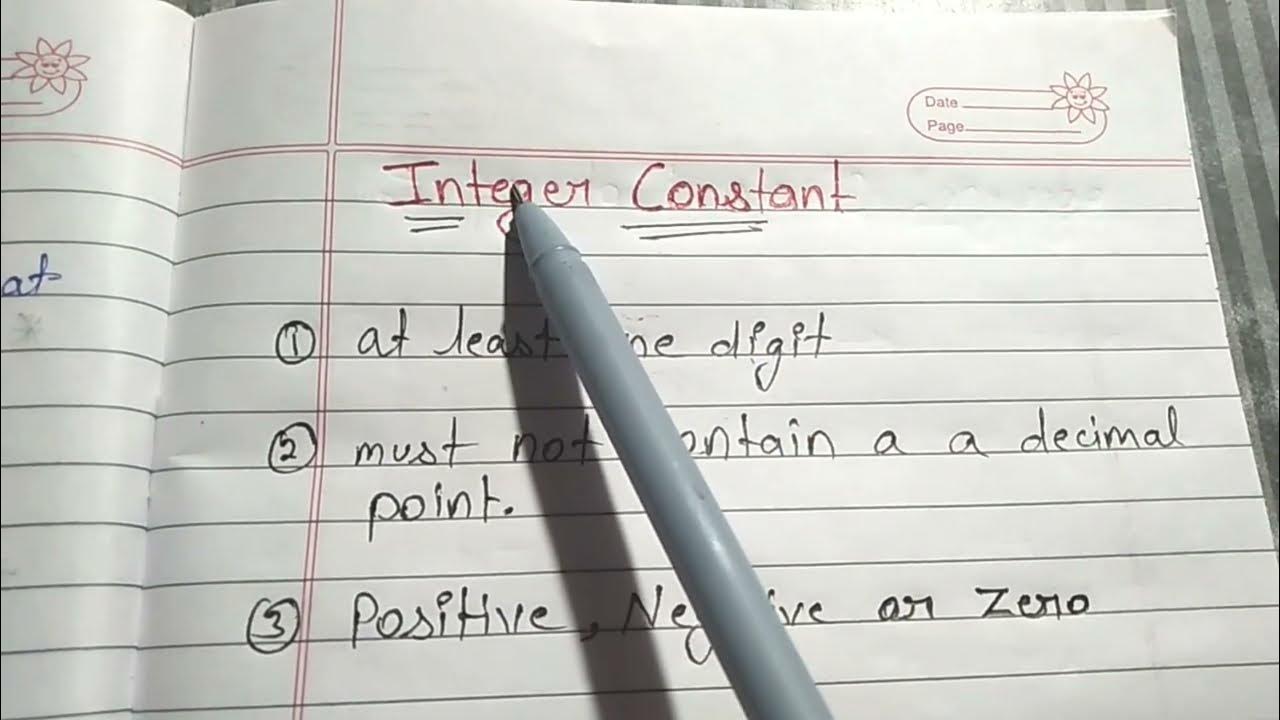 Date
Page
Integer Constant
at
① at least one digit
② must not contain a a decimal
point.
③ Positive, Negative or Zero